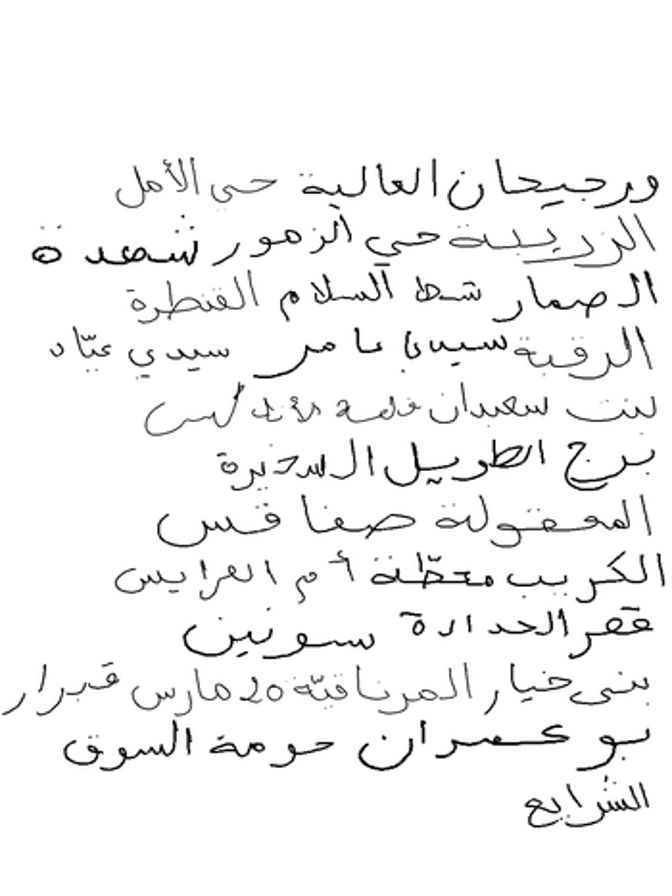 ورجيحان العالية حي الأمل
الزريبة حي الزهور شهدة
الصمار شط السلام القنطرة
الرقبة سيدي عامر سيدي عيّاد
بنت سعيدان قلعة الأندلس
برج الطويل الصخيرة
المعقولة صفاقس
الكريب محطّة أم العرايس
قصر الحدادة سونين
بني خيار المرناقيّة 20 مارس
بو عمران حومة السوق
الشرايع